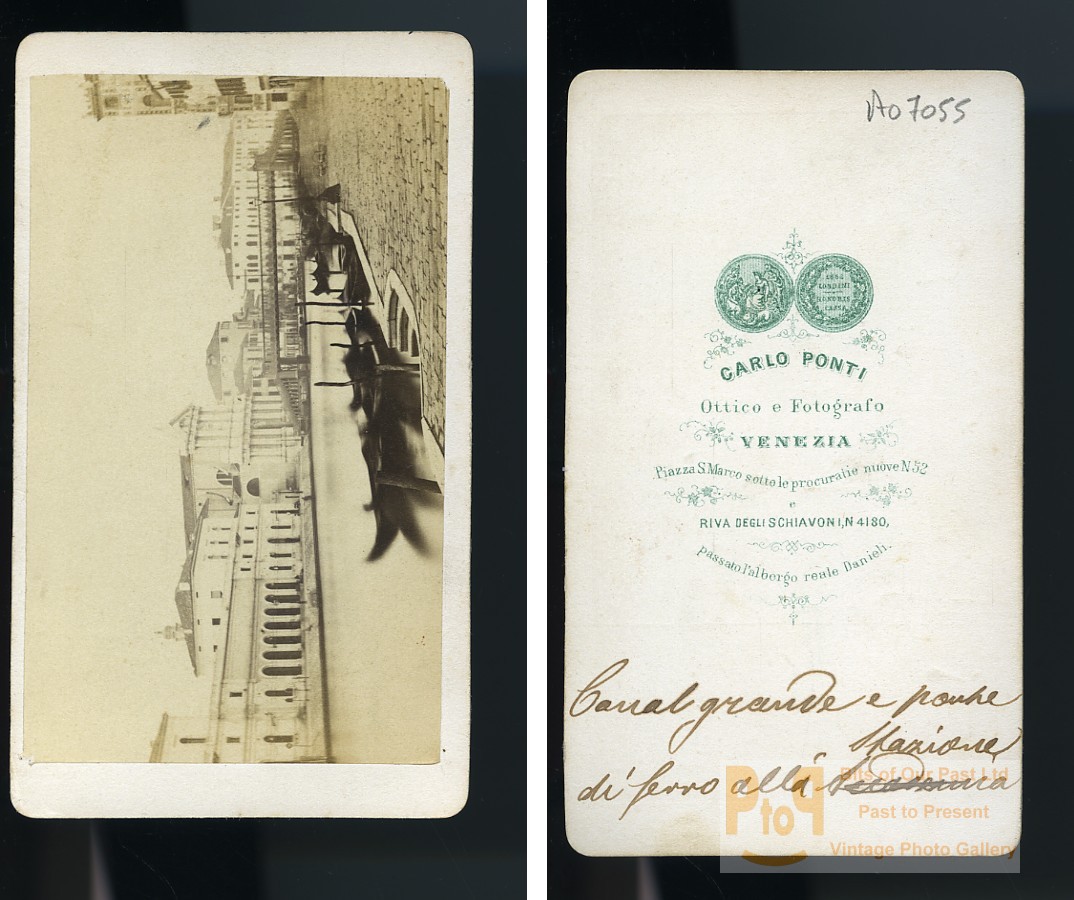 A07055
1862
LONDINI
HONORIS
CAUSA
CARLO PONTI
Ottico e Fotografo
VENEZIA
Piazza S. Marco sotto le procuratie nuove N. 52
e
RIVA DEGLI SCHIAVONI, N 4180,
Passato l'albergo reale Danieli.
Canal grande e ponte
Stazione
di ferro alla Accademia
PtoP
Bits of Our Past Ltd
Past to Present
Vintage Photo Gallery